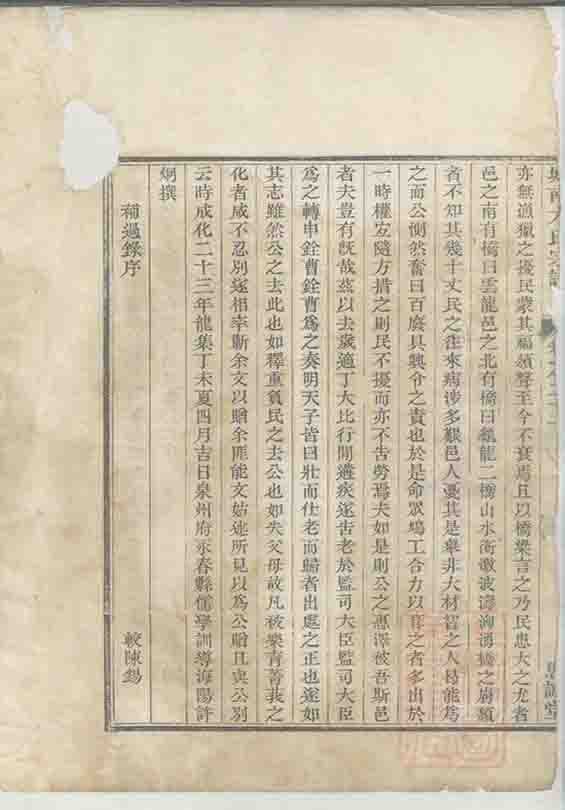 亦無遊獵之擾民蒙其福頌聲至今不衰焉且以橋梁言之乃民患大之尤者
邑之南有橋曰雲龍邑之北有橋曰龍二橋山水衝激波濤洶湧橋之崩頹
者不知其幾十丈民之往來病涉多艱邑人憂其是舉非大材智之人曷能為
之而公惻然奮曰百廢具興令之責也於是命眾鳩工合力以之者多出於
一時權宜隨方措之則民不擾而亦不告勞焉夫如是則公之惠澤彼吾斯邑
者夫豈有既哉茲以去歲適丁大比行間遘疾遂告老於監司大臣監司大臣
為之轉申銓曹銓曹為之奏明天子皆曰壯而仕老而歸者出處之正也遂如
其志雖然公之去此也如釋重負民之去公也如失父母故凡被樂育菁莪之
化者咸不忍別遂相率斬余文以贈余匪能文姑述所見以為公贈且與公別
云時成化二十三年龍集丁未夏四月吉日泉州府永春縣儒學訓導海陽許
炯撰
補過錄序
較陳錫